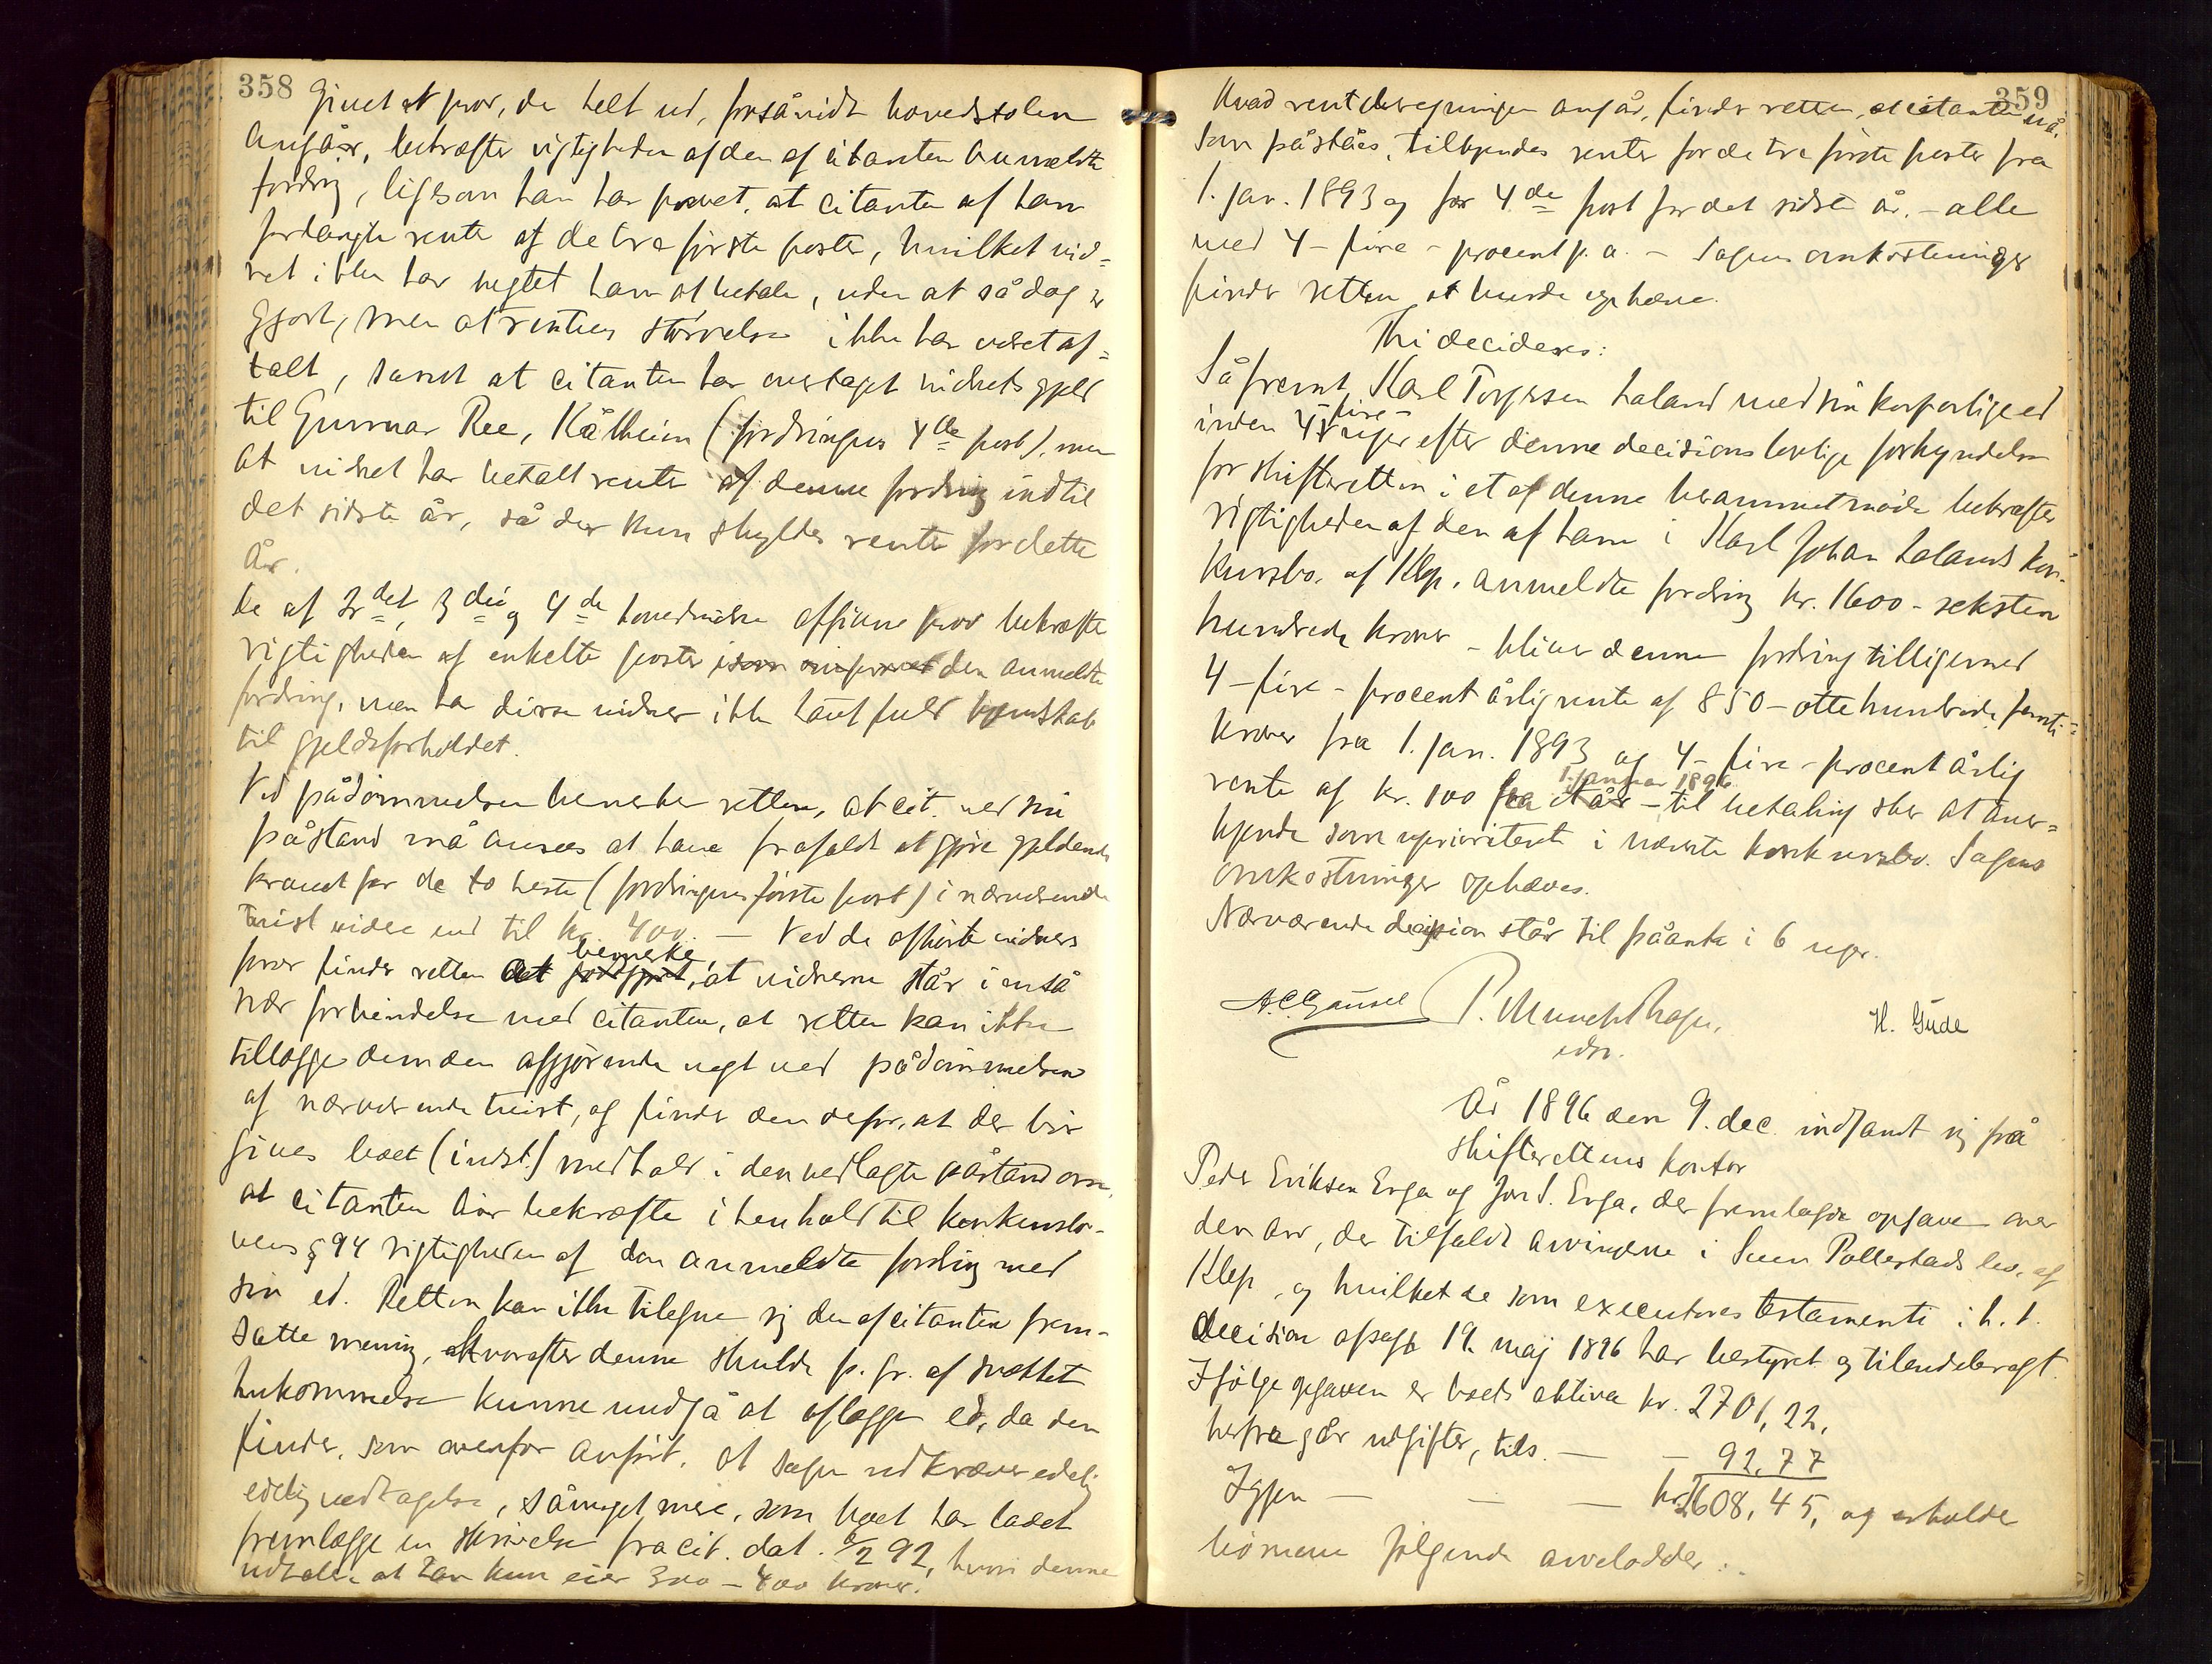 358
givet et prov, der helt ud, forsåvidt hovedstolen
angår, bekræfter rigtigheden af den af citanten anmeldte
fordring, ligesom han har provet, at citanten af ham
forlangte rente af de tre første poster, hvilket vid-
net ikke har negtet ham at betale, uden at så dog er
gjort, men at rentens størrelse ikke har været af-
talt, samt at citanten har overtaget vidnets gjeld
til Gunnar Ree, Kålheim (fordringens 4de post), men
at vidnet har betalt rente af denne fordring indtil
det sidste år, så der kun skyldes rente for dette
År.
De af 2det, 3die og 4de hovedvidne afgivne prov bekræfte
rigtigheden af enkelte poster i den anmeldte
fordring, men har disse vidner ikke havt fuld kjendskab
til gjeldsforholdet.
Ved pådømmelsen bemerker retten, at cit. ved sin
påstand må ansees at have frafaldt at gjøre gjeldende
kravet for de to heste (fordringens første post) i nærværende
tvist videre end til kr. 400. — Ved de afhørte vidners
prov finder retten at bemerke, at vidnerne står i en så
nær forbindelse med citanten, at retten kan ikke
tillægge dem den afgjørende vegt ved pådømmelsen
af nærværende tvist, og finder den derfor, at der bør
gives boet (indst.) medhold i den nedlagte påstand om,
at citanten bør bekræfte i henhold til konkurslo-
vens § 94 rigtigheden af den anmeldte fordring med
sin ed. Retten kan ikke tilegne sig den af citanten frem-
satte mening, hvorefter denne skulde p. gr. af svækket
hukommelse kunne undgå at aflægge ed, da den
finder, som ovenfor anført, at sagen udkræver edelig
edelig vedtagelse, såmeget mere, som boet har ladet
fremlægge en skrivelse fra cit. dat. 6/2 92, hvori denne
udtaler at han kun eier 300 – 400 kroner.
359
Hvad renteberegningen angår, finder retten, at citanten må,
som påståes, tilkjendes renter for de tre første poster fra
1. jan. 1893 og for 4de post for det sidste år. – alle
med 4 – fire – procent p. a. – Sagens omkostninger
finder retten at burde ophæve.
Thi decideres:
Såfremt Karl Torgersen Haland med sin korporlige ed
inden 4 – fire – uger efter denne decisions lovlige forkyndelse
for skifteretten i et af denne berammet møde bekræfter
rigtigheden af den af ham i Karl Johan Halands kon-
kursbo af Klep, anmeldte fordring kr. 1600 – seksten
hundrede kroner – bliver denne fordring tilligemed
4 – fire – procent årlig rente af 850 – ottehundrede femti-
kroner fra 1. jan. 1893 og 4 – fire – procent årlig
rente af kr. 100 fra 1. januar 1896 – til betaling sker at aner-
kjende som uprioriteret i nævnte konkursbo. Sagens
omkostninger ophæves.
Nærværende decision står til påanke i 6 uger.
A. C. Gausel P. Munch H. Gude
edsv.
År 1896 den 9. dec. indfandt sig på
skifterettens kontor
Peder Eriksen Erga og Jon S. Erga, der fremlagde opgave over
den arv, der tilfaldt arvingerne i Sven Pollestads bo, af
Klep, og hvilket de som executores testamenti i h. t.
decision afsagt 19. maj 1896 har bestyret og tilendebragt.
Ifølge opgaven er boets aktiva kr. 2701,22,
herfra går udgifter, tils. — – 92.77
Igjen — — — kr. 2608,45, og erholde
børnene følgende arvelodder: